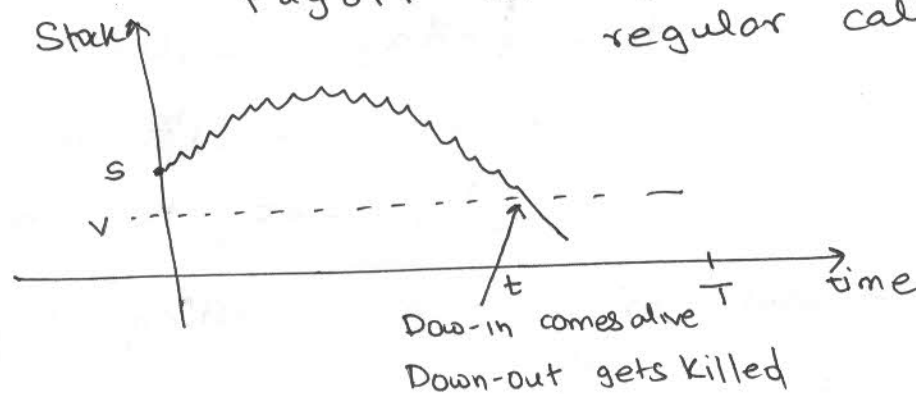 Payoff
regular cal
Stock
S
V
t
T
time
Dow-in comes alive
Down-out gets killed